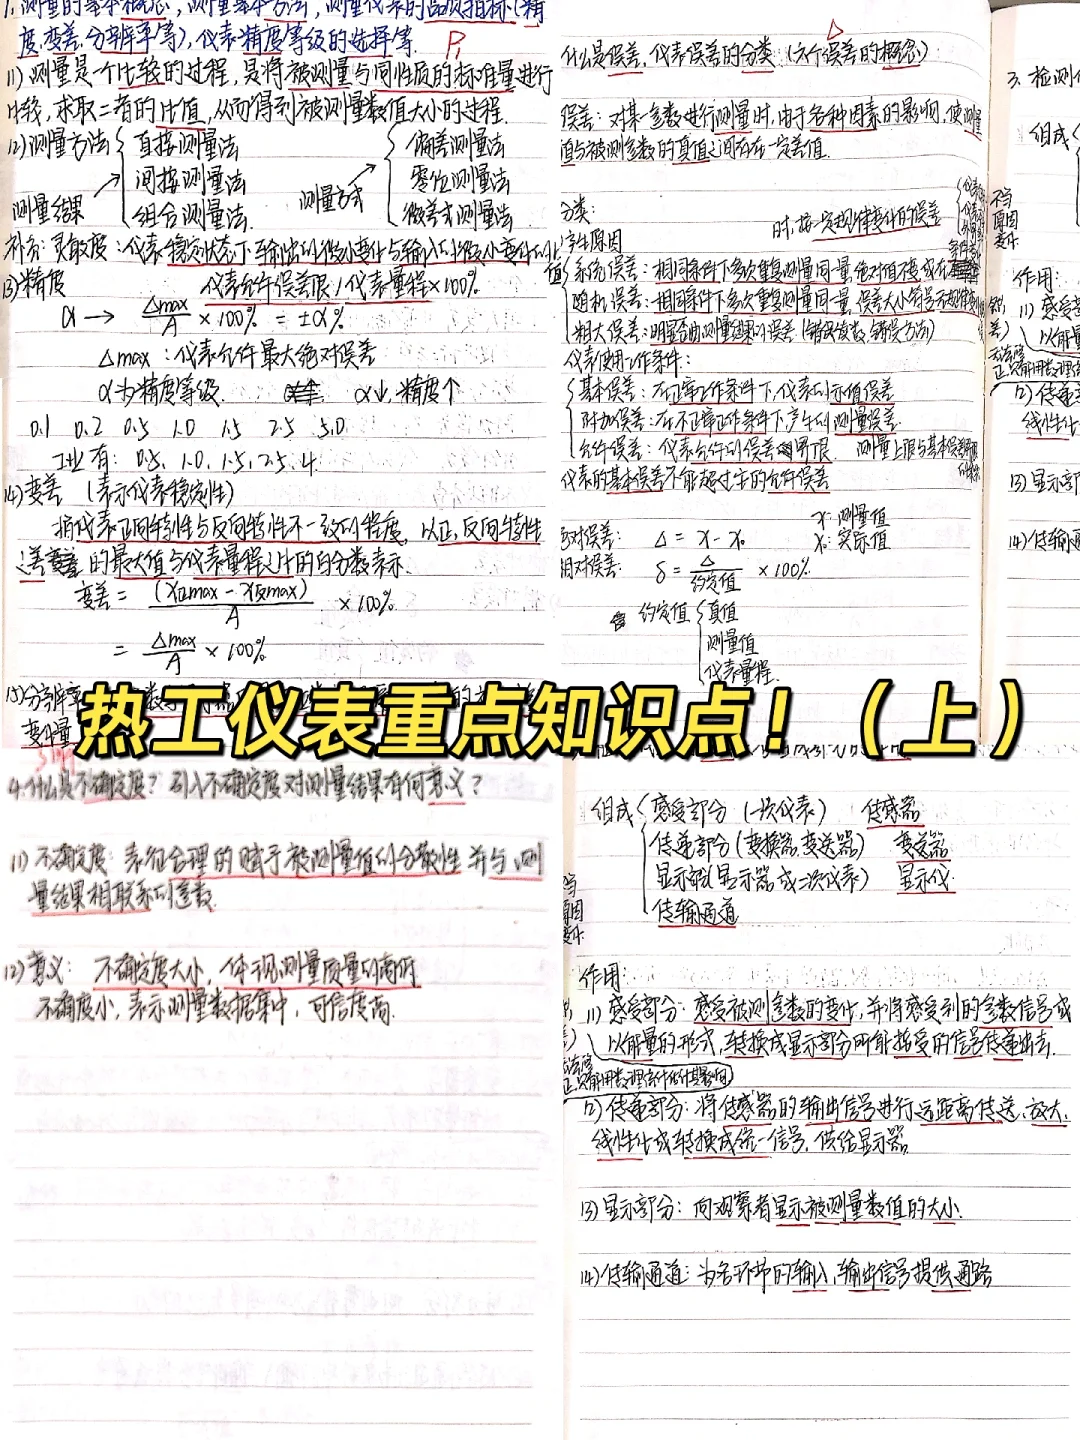 1.测量的基本概念，测量基本方法，测量仪表的品质指标（精
度、变差、分辨率等），仪表精度等级的选择等. P1
(1)测量是一个比较的过程，是将被测量与同性质的标准量进行
比较，求取二者的比值，从而得到被测量数值大小的过程.
(2)测量方法 直接测量法
间接测量法
组合测量法
测量结果
测量方式 偏差测量法
零位测量法
微差式测量法
补充：灵敏度：仪表稳定状态下输出的微小变化与输入的微小变化的比
值
(3)精度 仪表允许误差限/仪表量程×100%
α → Δmax/A ×100% = ±α%
Δmax：仪表允许最大绝对误差
α为精度等级. α↓，精度↑
0.1 0.2 0.5 1.0 1.5 2.5 5.0
工业有：0.5、1.0、1.5、2.5、4.
(4)变差 （表示仪表稳定性）
指仪表正向特性与反向特性不一致的程度，以正，反向特性
之差 的最大值与仪表量程之比的百分数表示.
变差 = (X正max − X反max)/A ×100%
= Δmax/A ×100%
(5)分辨率
变化量
什么是误差，仪表误差的分类（六个误差的概念）
误差：对某一参数进行测量时，由于各种因素的影响，使测量
值与被测参数的真值之间存在一定差值.
分类：
时，按一定规律变化的误差
产生原因
系统误差：相同条件下多次重复测量同一量，绝对值不变或在
随机误差：相同条件下多次重复测量同一量，误差大小符号无规律
粗大误差：明显歪曲测量结果的误差（错误读数，错误方法）
仪表使用工作条件：
基本误差：在正常工作条件下，仪表的示值误差
附加误差：在不正常工作条件下，产生的测量误差.
允许误差：仪表允许的误差界限.
仪表的基本误差不能超过它的允许误差
绝对误差： Δ = X − X₀
X：测量值
X₀：实际值
相对误差： δ = Δ/约定值 ×100%
约定值 真值
测量值
仪表量程
3. 检测仪
组成
作用：
(1)感受
以能量
(2)传递
线性化
(3)显示部
(4)传输通
热工仪表重点知识点！（上）
4.什么是不确定度？引入不确定度对测量结果有何意义？
(1)不确定度：表征合理的赋于被测量值的分散性，并与测
量结果相联系的参数.
(2)意义：不确定度大小，体现测量质量的高低
不确度小，表示测量数据集中，可信度高.
组成 感受部分（一次仪表） 传感器
传递部分（变换器，变送器） 变送器
显示部分（显示器或二次仪表） 显示仪.
传输通道
作用：
(1)感受部分：感受被测参数的变化，并将感受到的参数信号或
以能量的形式，转换成显示部分所能接受的信号传递出去.
(2)传递部分：将传感器的输出信号进行远距离传送、放大、
线性化或转换成统一信号，供给显示器
(3)显示部分：向观察者显示被测量数值的大小.
(4)传输通道：为各环节的输入，输出信号提供通路